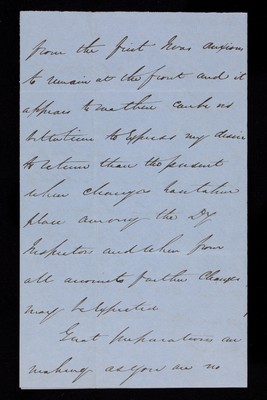 from the first I was anxious
to remain at the front and it
appears to me there can be no
to express my desire
to return than the present
when changes have taken
place among the Dy
Inspectors and when from
all accounts further changes
may be expected
Great preparations are
making as you are no